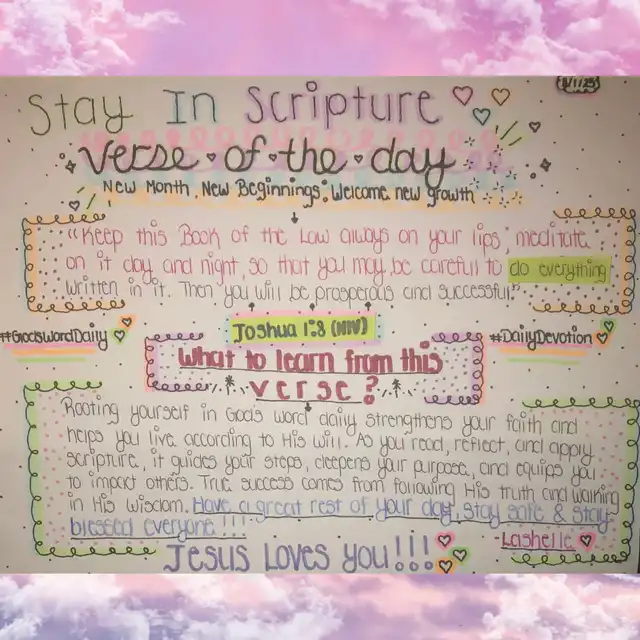 8/1/25
Stay In Scripture
Verse of the day
New Month, New Beginnings: Welcome new growth
"Keep this Book of the Law always on your lips; meditate
on it day and night, so that you may be careful to do everything
written in it. Then you will be prosperous and successful."
Joshua 1:8 (NIV)
#GodsWordDaily
#DailyDevotion
What to learn from this
verse?
Rooting yourself in God's word daily strengthens your faith and
helps you live according to His will. As you read, reflect, and apply
scripture, it guides your steps, deepens your purpose, and equips you
to impact others. True success comes from following His truth and walking
in His wisdom. Have a great rest of your day, stay safe & stay
blessed everyone!!!
Lashelle
Jesus Loves you!!!